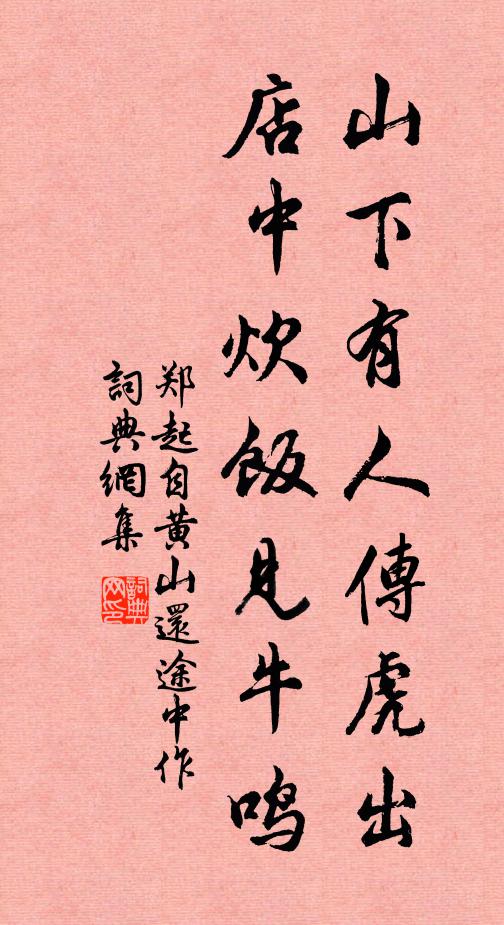 山下有人傳虎出
店中炊飯見牛鸣
郑起自黄山還途中作
詞典網集
詞典
网印